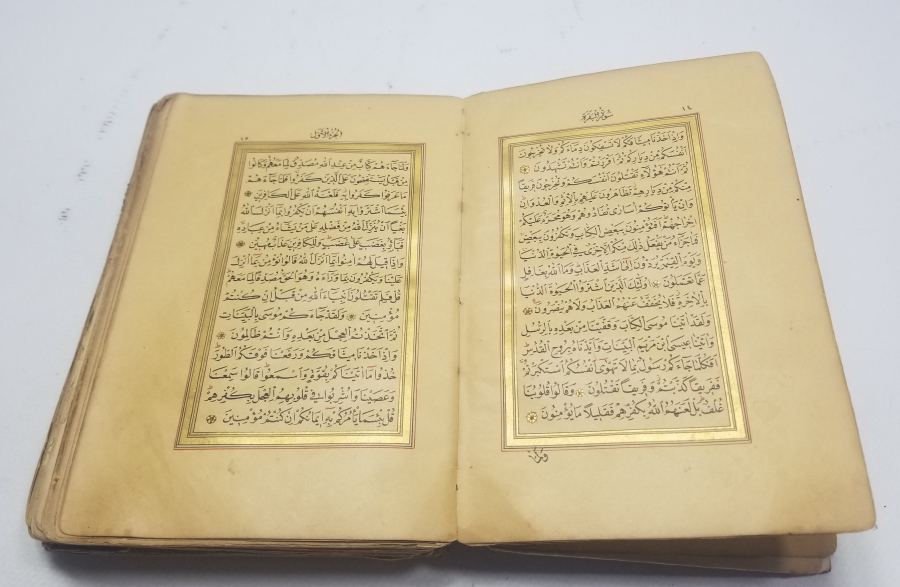 ١٤
سُورَةُ الْبَقَرَةِ
وَاِذْ اَخَذْنَا مِيثَاقَكُمْ لَا تَسْفِكُونَ دِمَاءَكُمْ وَلَا تُخْرِجُونَ
اَنْفُسَكُمْ مِنْ دِيَارِكُمْ ثُمَّ اَقْرَرْتُمْ وَاَنْتُمْ تَشْهَدُونَ
ثُمَّ اَنْتُمْ هٰؤُلَاءِ تَقْتُلُونَ اَنْفُسَكُمْ وَتُخْرِجُونَ فَرِيقًا
مِنْكُمْ مِنْ دِيَارِهِمْ تَظَاهَرُونَ عَلَيْهِمْ بِالْاِثْمِ وَالْعُدْوَانِ
وَاِنْ يَأْتُوكُمْ اُسَارٰى تُفَادُوهُمْ وَهُوَ مُحَرَّمٌ عَلَيْكُمْ
اِخْرَاجُهُمْ اَفَتُؤْمِنُونَ بِبَعْضِ الْكِتَابِ وَتَكْفُرُونَ بِبَعْضٍ
فَمَا جَزَاءُ مَنْ يَفْعَلُ ذٰلِكَ مِنْكُمْ اِلَّا خِزْيٌ فِي الْحَيٰوةِ الدُّنْيَا
وَيَوْمَ الْقِيٰمَةِ يُرَدُّونَ اِلٰى اَشَدِّ الْعَذَابِ وَمَا اللّٰهُ بِغَافِلٍ
عَمَّا تَعْمَلُونَ اُولٰئِكَ الَّذِينَ اشْتَرَوُا الْحَيٰوةَ الدُّنْيَا
بِالْاٰخِرَةِ فَلَا يُخَفَّفُ عَنْهُمُ الْعَذَابُ وَلَا هُمْ يُنْصَرُونَ
وَلَقَدْ اٰتَيْنَا مُوسَى الْكِتَابَ وَقَفَّيْنَا مِنْ بَعْدِهِ بِالرُّسُلِ
وَاٰتَيْنَا عِيسَى ابْنَ مَرْيَمَ الْبَيِّنَاتِ وَاَيَّدْنَاهُ بِرُوحِ الْقُدُسِ
اَفَكُلَّمَا جَاءَكُمْ رَسُولٌ بِمَا لَا تَهْوٰى اَنْفُسُكُمُ اسْتَكْبَرْتُمْ
فَفَرِيقًا كَذَّبْتُمْ وَفَرِيقًا تَقْتُلُونَ وَقَالُوا قُلُوبُنَا
غُلْفٌ بَلْ لَعَنَهُمُ اللّٰهُ بِكُفْرِهِمْ فَقَلِيلًا مَا يُؤْمِنُونَ
وَلَمَّا
اَلْجُزْءُ الْاَوَّلُ
وَلَمَّا جَاءَهُمْ كِتَابٌ مِنْ عِنْدِ اللّٰهِ مُصَدِّقٌ لِمَا مَعَهُمْ وَكَانُوا
مِنْ قَبْلُ يَسْتَفْتِحُونَ عَلَى الَّذِينَ كَفَرُوا فَلَمَّا جَاءَهُمْ
مَا عَرَفُوا كَفَرُوا بِهِ فَلَعْنَةُ اللّٰهِ عَلَى الْكَافِرِينَ
بِئْسَمَا اشْتَرَوْا بِهِ اَنْفُسَهُمْ اَنْ يَكْفُرُوا بِمَا اَنْزَلَ اللّٰهُ
بَغْيًا اَنْ يُنَزِّلَ اللّٰهُ مِنْ فَضْلِهِ عَلٰى مَنْ يَشَاءُ مِنْ عِبَادِهِ
فَبَاؤُ بِغَضَبٍ عَلٰى غَضَبٍ وَلِلْكَافِرِينَ عَذَابٌ مُهِينٌ
وَاِذَا قِيلَ لَهُمْ اٰمِنُوا بِمَا اَنْزَلَ اللّٰهُ قَالُوا نُؤْمِنُ بِمَا اُنْزِلَ
عَلَيْنَا وَيَكْفُرُونَ بِمَا وَرَاءَهُ وَهُوَ الْحَقُّ مُصَدِّقًا لِمَا مَعَهُمْ
قُلْ فَلِمَ تَقْتُلُونَ اَنْبِيَاءَ اللّٰهِ مِنْ قَبْلُ اِنْ كُنْتُمْ
مُؤْمِنِينَ وَلَقَدْ جَاءَكُمْ مُوسٰى بِالْبَيِّنَاتِ
ثُمَّ اتَّخَذْتُمُ الْعِجْلَ مِنْ بَعْدِهِ وَاَنْتُمْ ظَالِمُونَ
وَاِذْ اَخَذْنَا مِيثَاقَكُمْ وَرَفَعْنَا فَوْقَكُمُ الطُّورَ
خُذُوا مَا اٰتَيْنَاكُمْ بِقُوَّةٍ وَاسْمَعُوا قَالُوا سَمِعْنَا
وَعَصَيْنَا وَاُشْرِبُوا فِي قُلُوبِهِمُ الْعِجْلَ بِكُفْرِهِمْ
قُلْ بِئْسَمَا يَأْمُرُكُمْ بِهِ اِيمَانُكُمْ اِنْ كُنْتُمْ مُؤْمِنِينَ